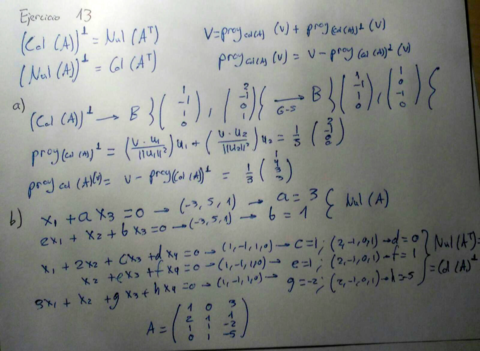 Ejercicio 13
(Col(A))^⊥ = Nul(A^T)    V = proy_Col(A)(V) + proy_(Col(A))^⊥(V)
(Nul(A))^⊥ = Col(A^T)    proy_Col(A)(V) = V - proy_(Col(A))^⊥(V)
a)
(Col(A))^⊥ → B } (1 -1 1 0), (2 -1 0 1) { → G-S B } (1 -1 1 0), (1 0 -1 {
proy_(Col(A))^⊥ = (V·u1 / ||u1||²) u1 + (V·u2 / ||u2||²) u2 = 1/3
proy_Col(A)(V) = V - proy_(Col(A))^⊥ = 1/3
b) x1 + a x3 = 0 → (-3, 5, 1) → a = 3 } Nul(A)
2x1 + x2 + b x3 = 0 → (-3, 5, 1) → b = 1
x1 + 2x2 + c x3 + d x4 = 0 → (1, -1, 1, 0) → c = 1; (2, -1, 0, 1) → d = 0
x2 + e x3 + f x4 = 0 → (1, -1, 1, 0) → e = 1; (2, -1, 0, 1) → f = 1 } Nul(A^T) = Col(A)^⊥
3x1 + x2 + g x3 + h x4 = 0 → (1, -1, 1, 0) → g = -2; (2, -1, 0, 1) → h = -5
A = (1 0 3
2 1 1
1 1 -2
0 1 -5)